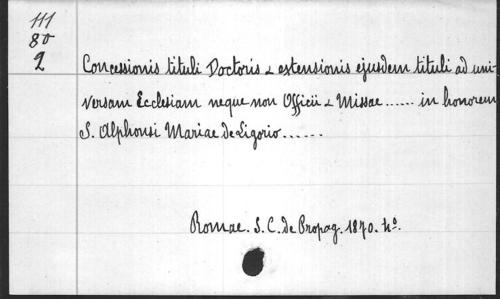 111
80
2
Concessionis tituli Doctoris & extensionis ejusdem tituli ad uni-
versam Ecclesiam neque non Officii & Missae ...... in honorem
S. Alphonsi Mariae de Ligorio ......
Romae. S. C. de Propag. 1870. 4o.